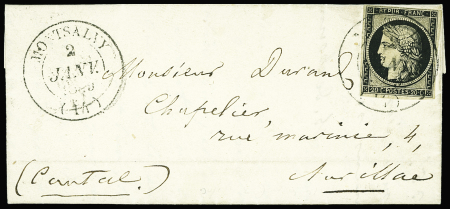 REPUB. FRANC.
MONTSALVY
2
JANV.
(14)
20 C. POSTES 20 C.
Monsieur Durand
Chapelier
rue marinie, 4,
(Cantal.) Aurillac